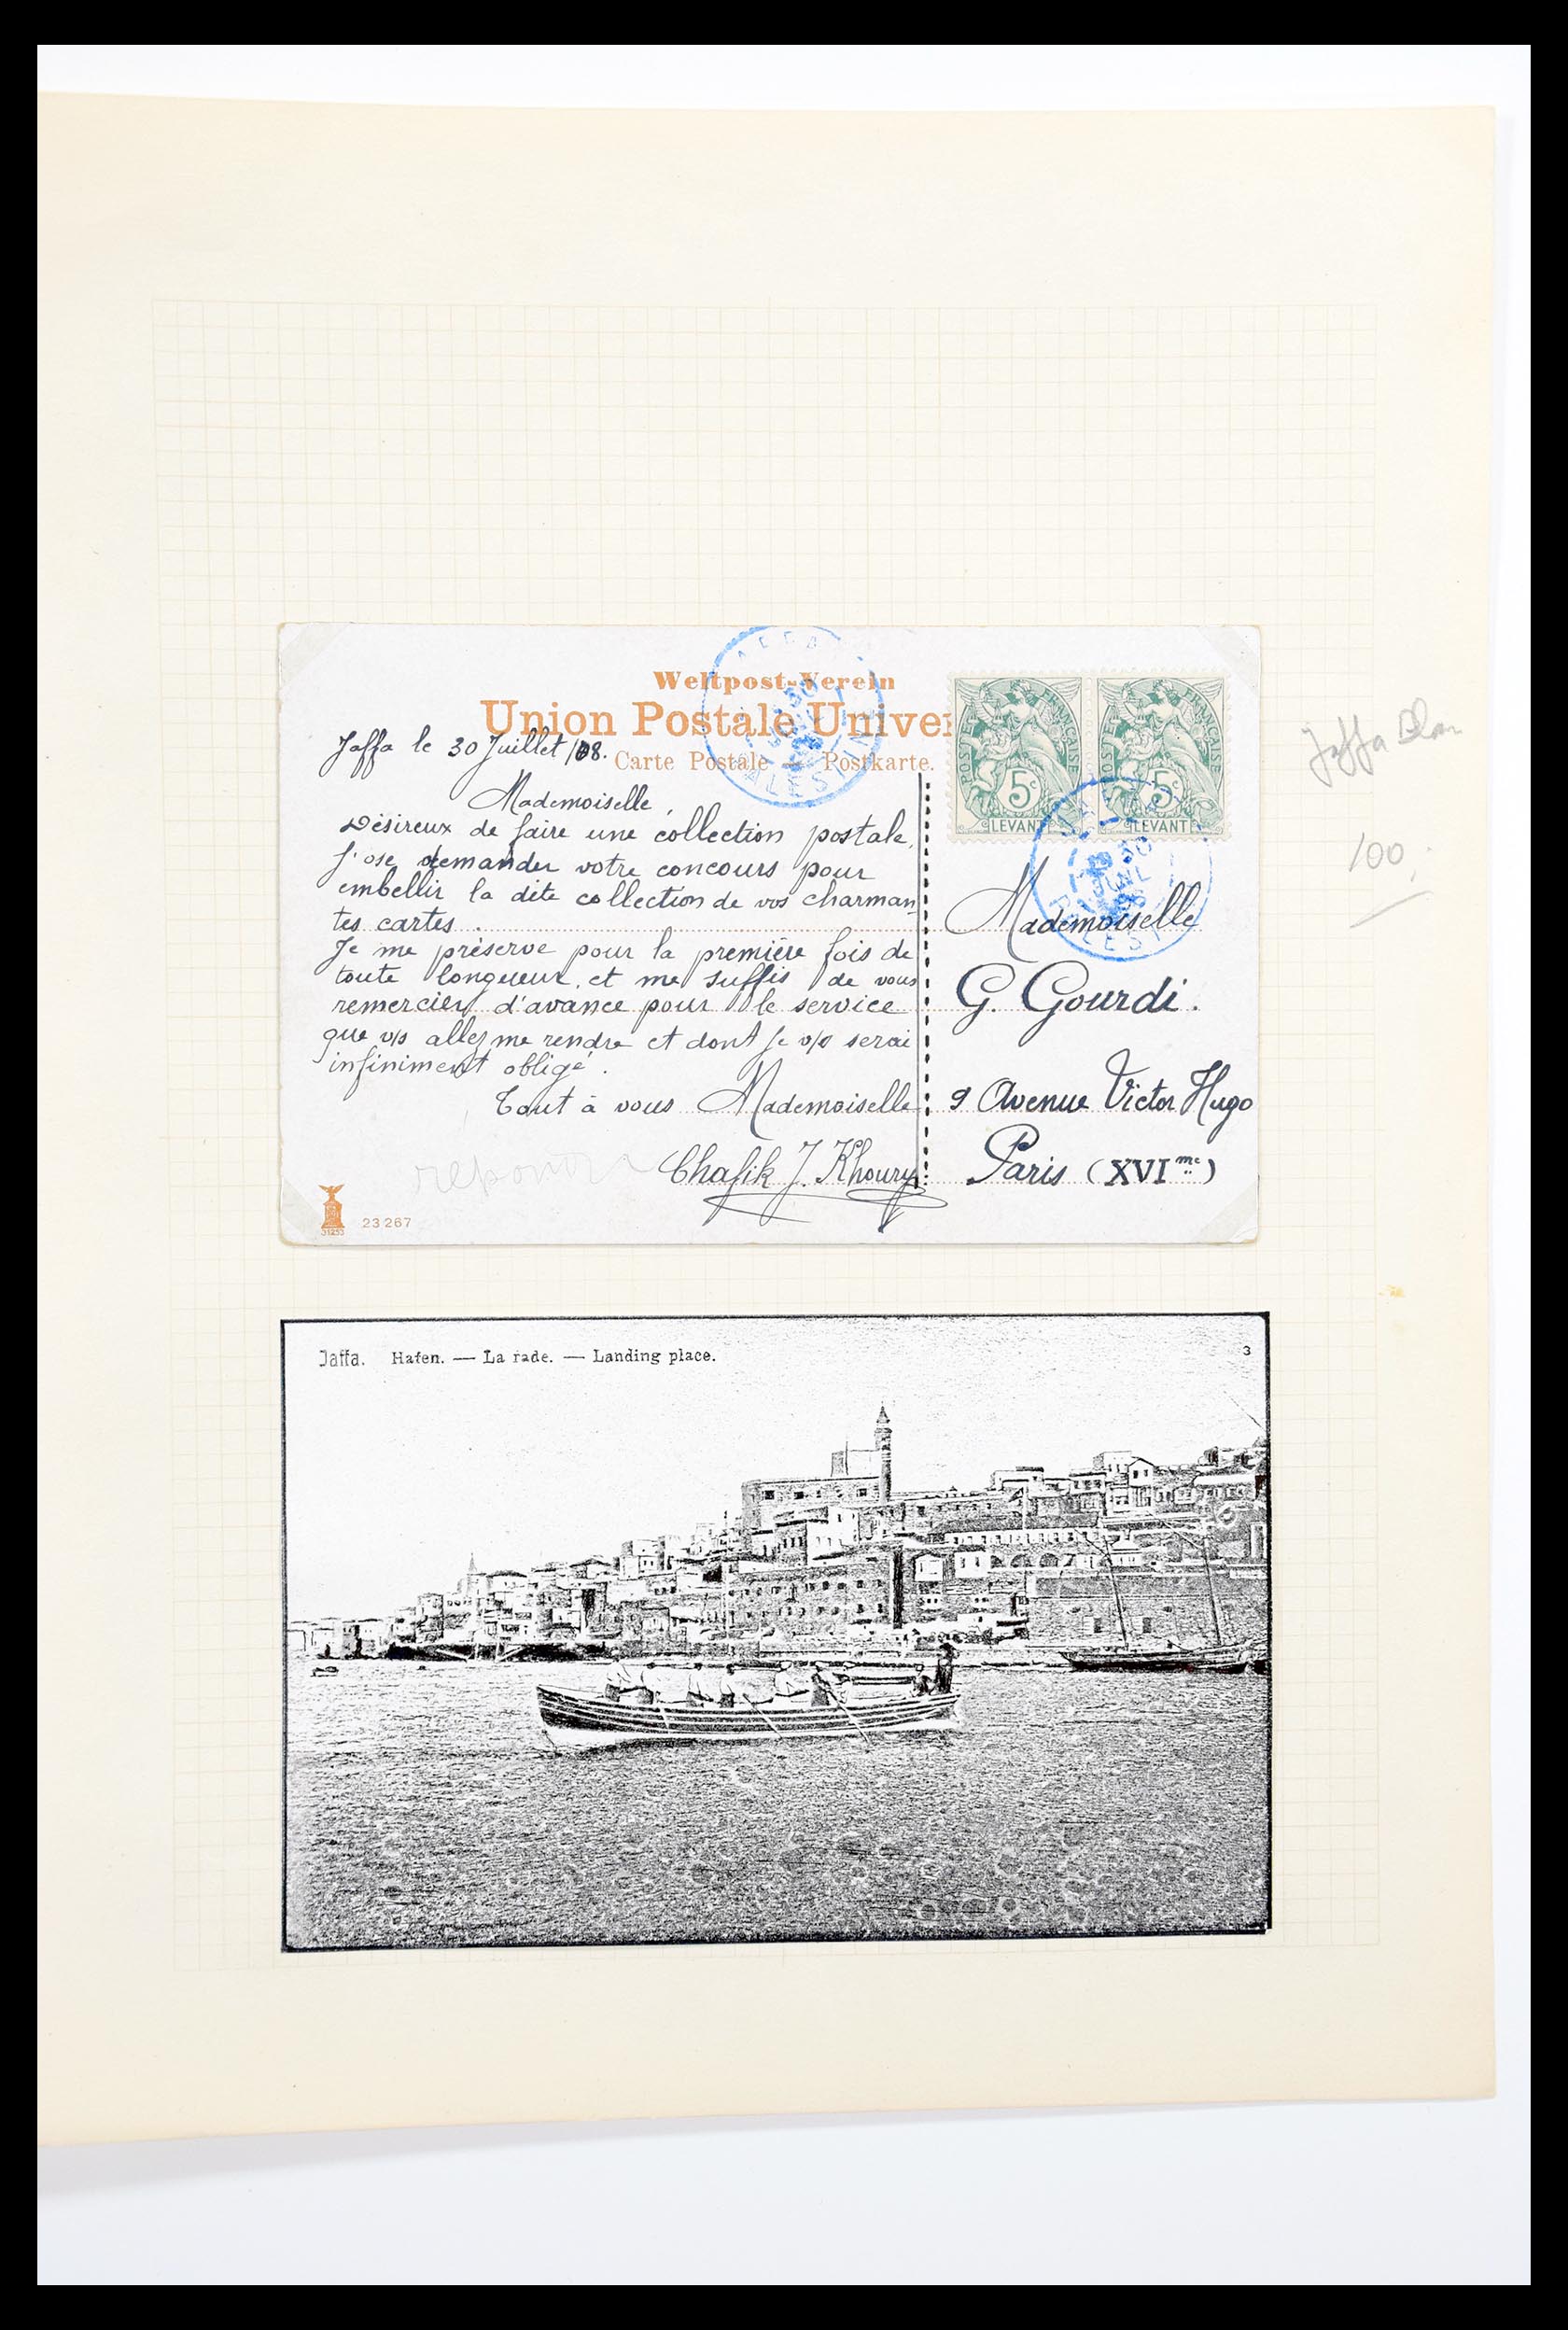 Weltpost-Verein
Union Postale Univer
Carte Postale — Postkarte.
Jaffa le 30 Juillet/08.
Mademoiselle,
Désireux de faire une collection postale,
j'ose demander votre concours pour
embellir la dite collection de vos charman
tes cartes.
Je me préserve pour la première fois de
toute longueur, et me suffis de vous
remercier d'avance pour le service
que v/s allez me rendre et dont je v/s serai
infiniment obligé.
Tout à vous Mademoiselle
Chafik J. Khoury
23267
31255
POSTE FRANÇAISE
5c
LEVANT
POSTE FRANÇAISE
5c
LEVANT
JAFFA
30
PALESTINE
30
JUIL
PALESTINE
Mademoiselle
G. Gourdi.
9 Avenue Victor Hugo
Paris (XVIme)
Jaffa
100,
Jaffa. Hafen. — La rade. — Landing place.
3